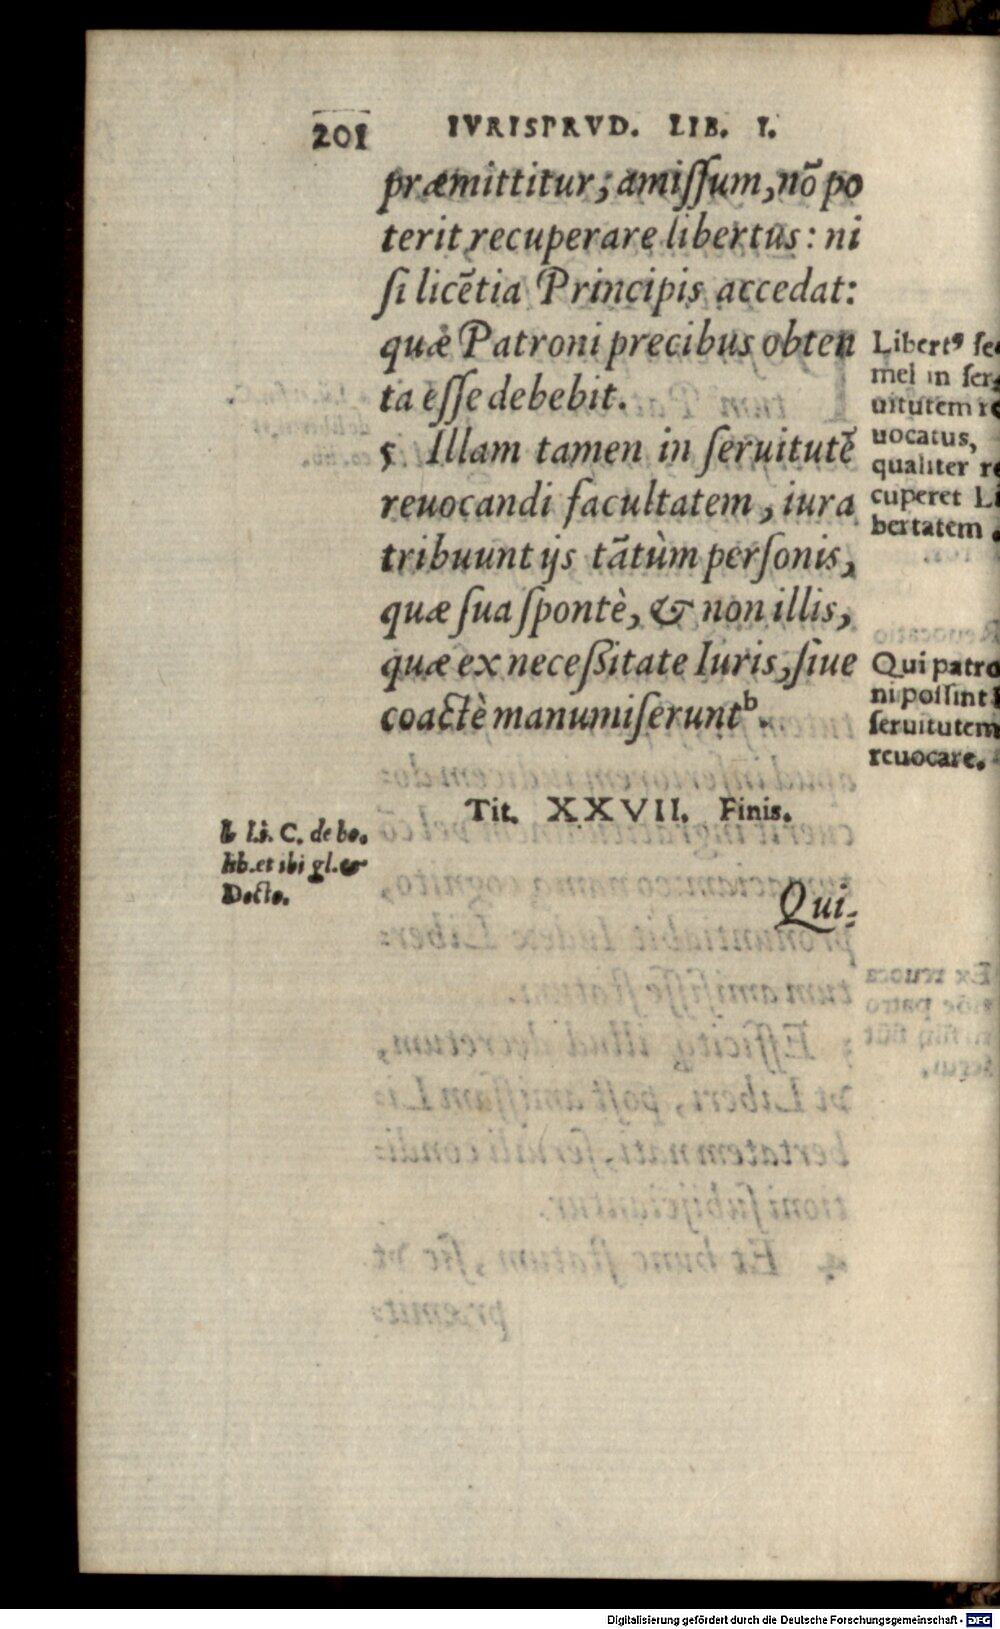 201 IVRISPRVD. LIB. I.
præmittitur; amiſſum, nõ po
terit recuperare libertus: ni
ſi licẽtia Principis accedat:
quæ Patroni precibus obten
ta eſſe debebit.
5 Illam tamen in ſeruitutẽ
reuocandi facultatem, iura
tribuunt ijs tãtùm perſonis,
quæ ſua ſpontè, & non illis,
quæ ex neceſſitate Iuris, ſiue
coactè manumiſerunt b.
Tit. XXVII. Finis.
Qui-
Libertꝰ ſe
mel in ſer
uitutem re
uocatus,
qualiter re
cuperet Li
bertatem.
Qui patro
ni poſſint
ſeruitutem
reuocare.
b C. de bo.
lib. et ibi gl. &
Docto.
Digitalisierung gefördert durch die Deutsche Forschungsgemeinschaft - DFG